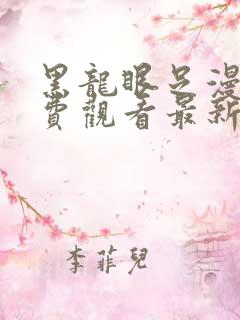 黑龍眼足漫
費觀看最新
李菲兒